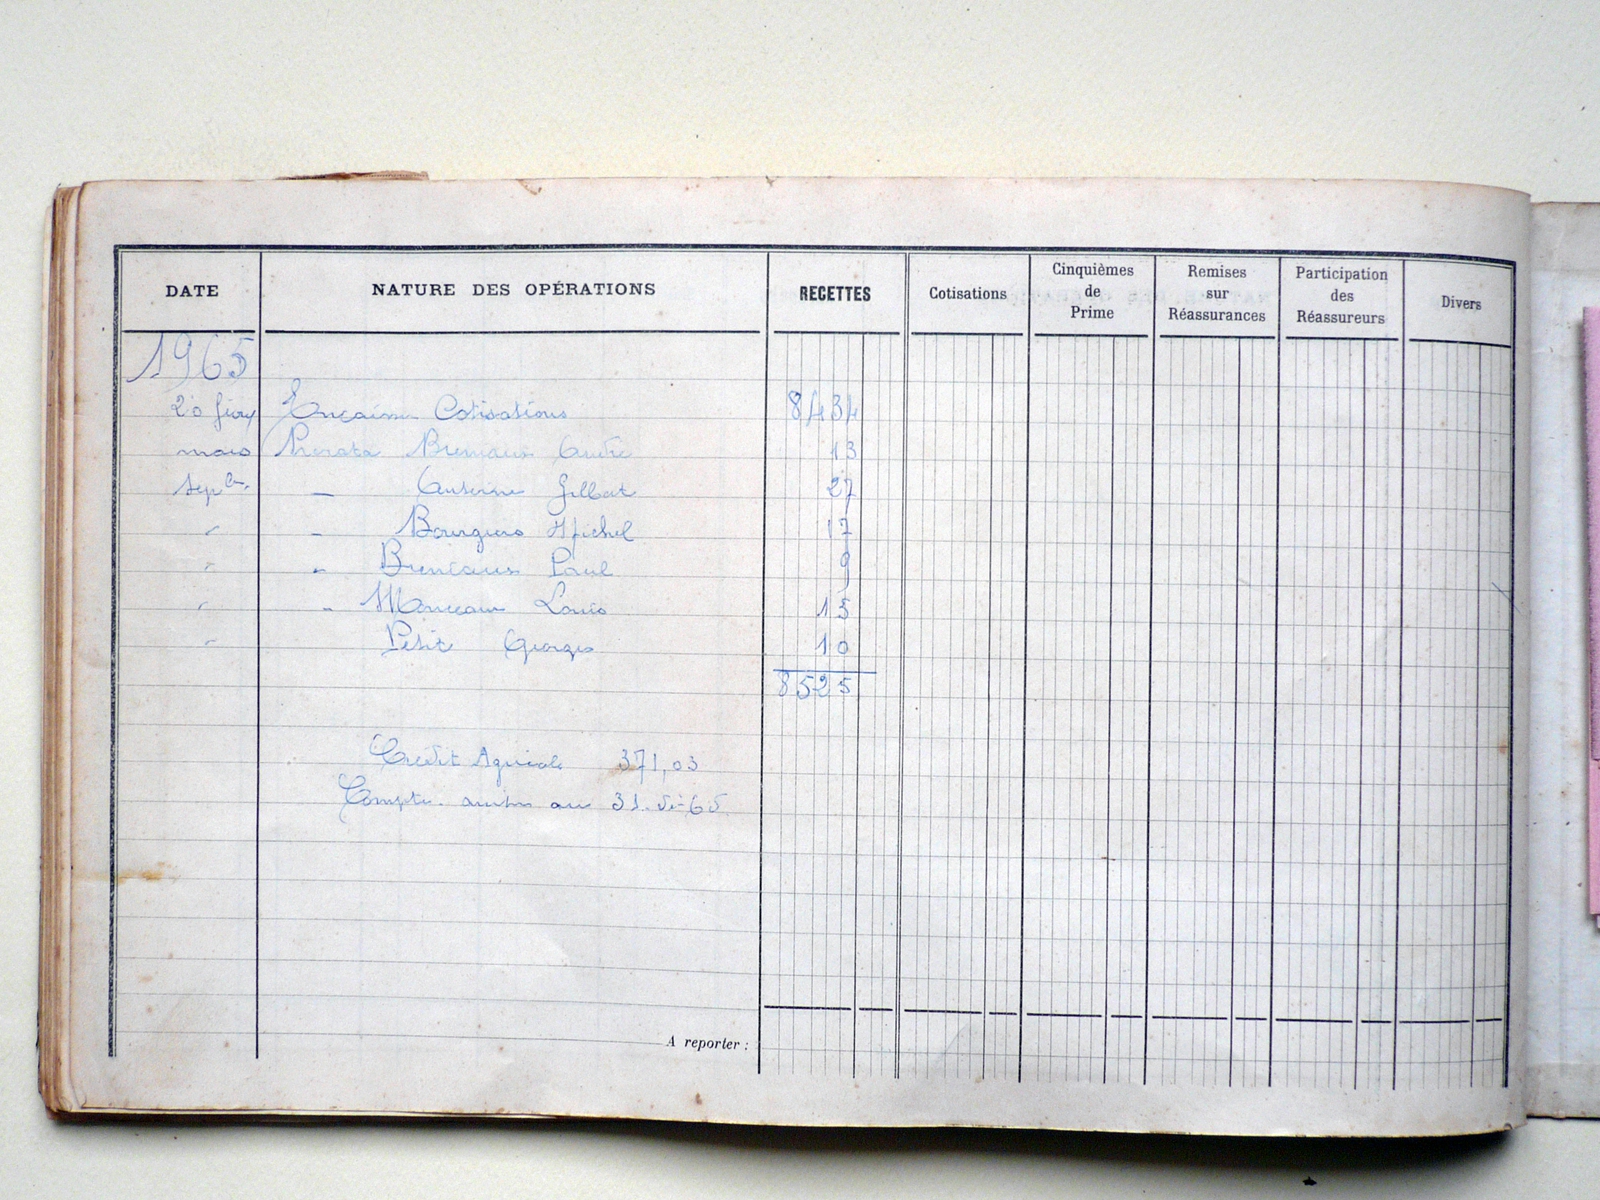 DATE NATURE DES OPÉRATIONS RECETTES Cotisations Cinquièmes de Prime Remises sur Réassurances Participation des Réassureurs Divers
1965
20 Cotisations 8434
mars Prorata 13
Sepbre — Gilbert 27
" - Bourgeois Michel 17
" - Paul 9
" - Louis 15
" Petit Georges 10
8525
Crédit Agricole 371,03
Compte au 31-Dé-65
A reporter :